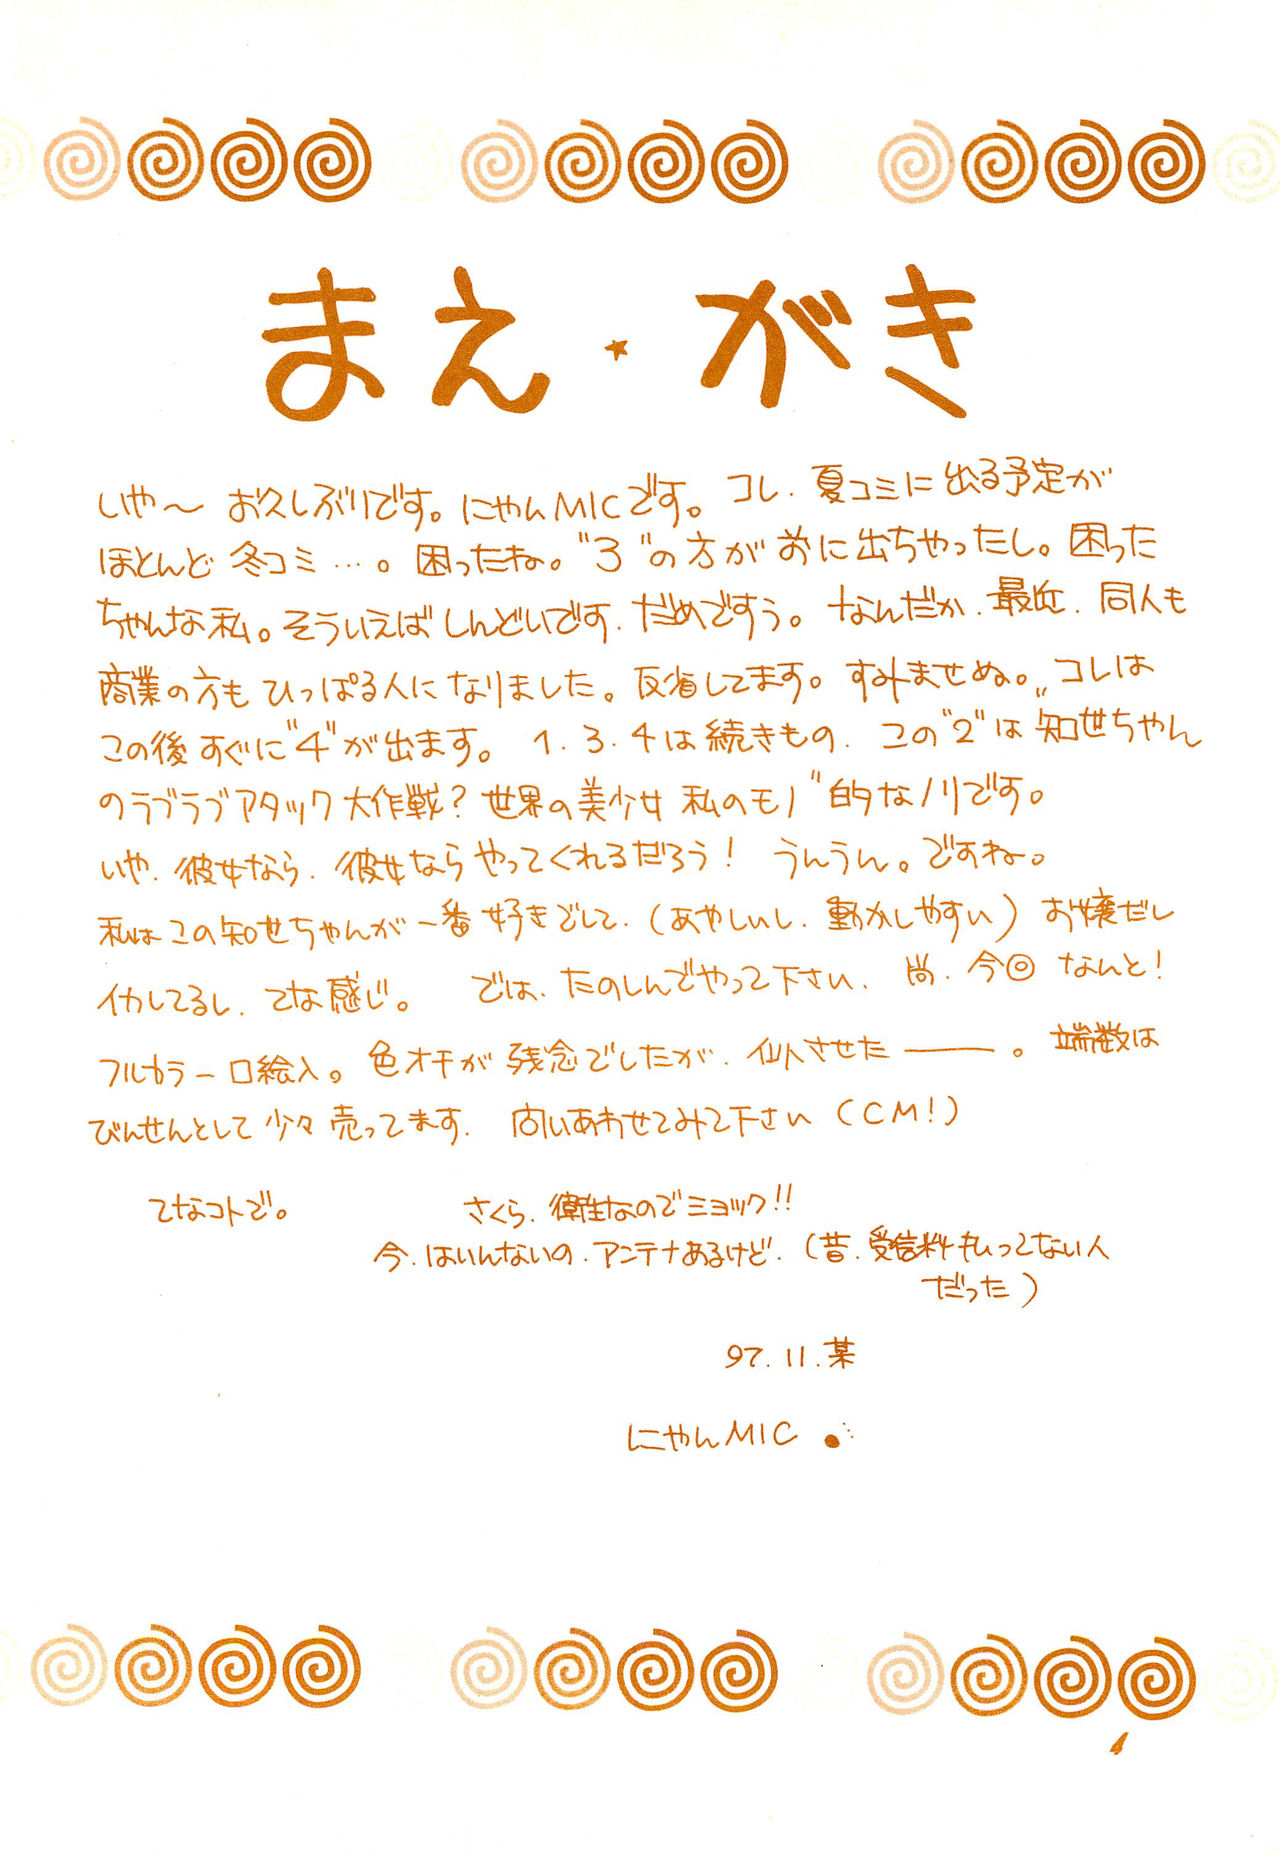 まえ☆がき
いや～ お久しぶりです。にゃんMICです。コレ、夏コミに出る予定が
ほとんど冬コミ…。困ったね。"3"の方が前に出ちゃったし。困った
ちゃんな私。そういえばしんどいです、だめですぅ。なんだか、最近、同人も
商業の方もひっぱる人になりました。反省してます。すみませぬ。コレは
この後すぐに"4"が出ます。1.3.4は続きもの、この"2"は"知世ちゃん
のラブラブアタック大作戦？世界の美少女 私のモノ"的なノリです。
いや、彼女なら、彼女ならやってくれるだろう！ うんうん。ですね。
私はこの知世ちゃんが一番好きでして、(あやしいし、動かしやすい) お嬢だし
イカしてるし、てな感じ。 では、たのしんでやって下さい、尚、今回 なんと！
フルカラー口絵入。色オチが残念でしたが、仙人させた――。端数は
びんせんとして少々売ってます、問いあわせてみて下さい (CM！)
てなコトで。
さくら、衛生なのでミョック！！
今、はいんないの、アンテナあるけど、(昔、受信料もいってない人
だった)
97.11.某
にゃんMIC